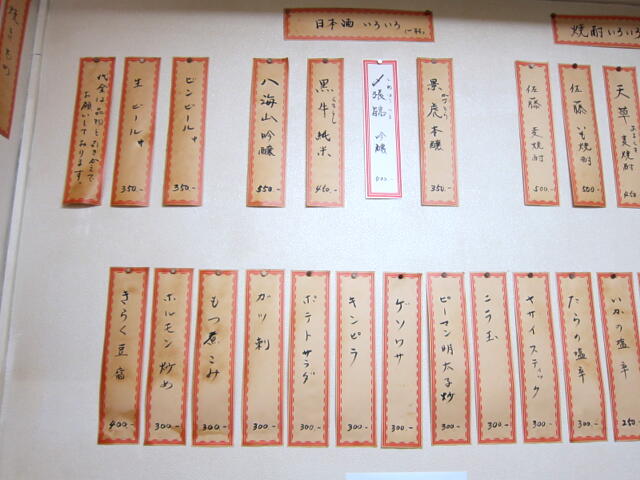 日本酒 いろいろ
焼酎いろいろ
代金は品物と引きかえで
お願いしております。
生ビール中
350.-
ビンビール中
350.-
八海山吟醸
550.-
黒牛 純米
450.-
〆張鶴 吟醸
景虎本醸
350.-
佐藤 麦焼酎
500.-
佐藤 いも焼酎
500.-
天草 麦焼酎
450.-
きらく豆腐
400-
ホルモン炒め
300.-
もつ煮こみ
300.-
ガツ刺
300.-
ポテトサラダ
300.-
キンピラ
300.-
ゲソワサ
300.-
ピーマン明太子炒
300.-
ニラ玉
300.-
ヤサイスティック
300.-
たらの塩辛
300.-
いかの塩辛
250.-